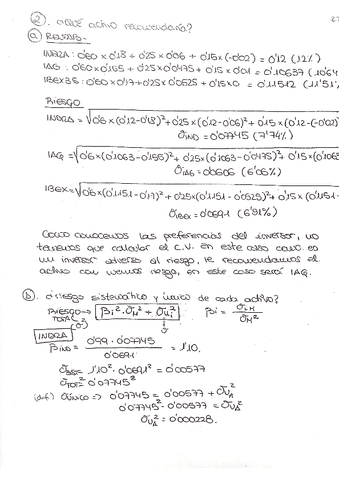 ②. ¿Qué activo recomendaría?
ⓐ RENTAB.-
INDRA: 0'60 x 0'18 + 0'25 x 0'06 + 0'15 x (-0'02) = 0'12 (12%)
IAG: 0'60 x 0'155 + 0'25 x 0'0475 + 0'15 x 0'01 = 0'10637 (10'64
IBEX35: 0'60 x 0'17 + 0'25 x 0'0525 + 0'15 x 0 = 0'11512 (11'51%
RIESGO
INDRA = √0'6 x (0'12-0'18)² + 0'25 x (0'12-0'06)² + 0'15 x (0'12-(-0'02)
σIND = 0'07745 (7'74%)
IAG = √0'6 x (0'1063-0'155)² + 0'25 x (0'1063-0'0475)² + 0'15 x (0'1063
σIAG = 0'0606 (6'06%)
IBEX = √0'6 x (0'1151-0'17)² + 0'25 x (0'1151-0'0525)² + 0'15 x (0'1151-
σIBEX = 0'0691 (6'91%)
Como conocemos las preferencias del inversor, no
tenemos que calcular el C.V. en este caso como es
un inversor adverso al riesgo, le recomendamos el
activo con menos riesgo, en este caso será IAG.
ⓑ. ¿riesgo sistemático y único de cada activo?
RIESGO TOTAL (σ²) → βi² · σM² + σU² βi = σiM / σM²
INDRA
βIND = 0'99 · 0'07745 / 0'0691 = 1'10.
= 1'10² · 0'0691² = 0'00577
σTOT² = 0'07745²
(dif) Único => 0'07745² = 0'00577 + σU²
0'07745² - 0'00577 = σU²
σU² = 0'000228.